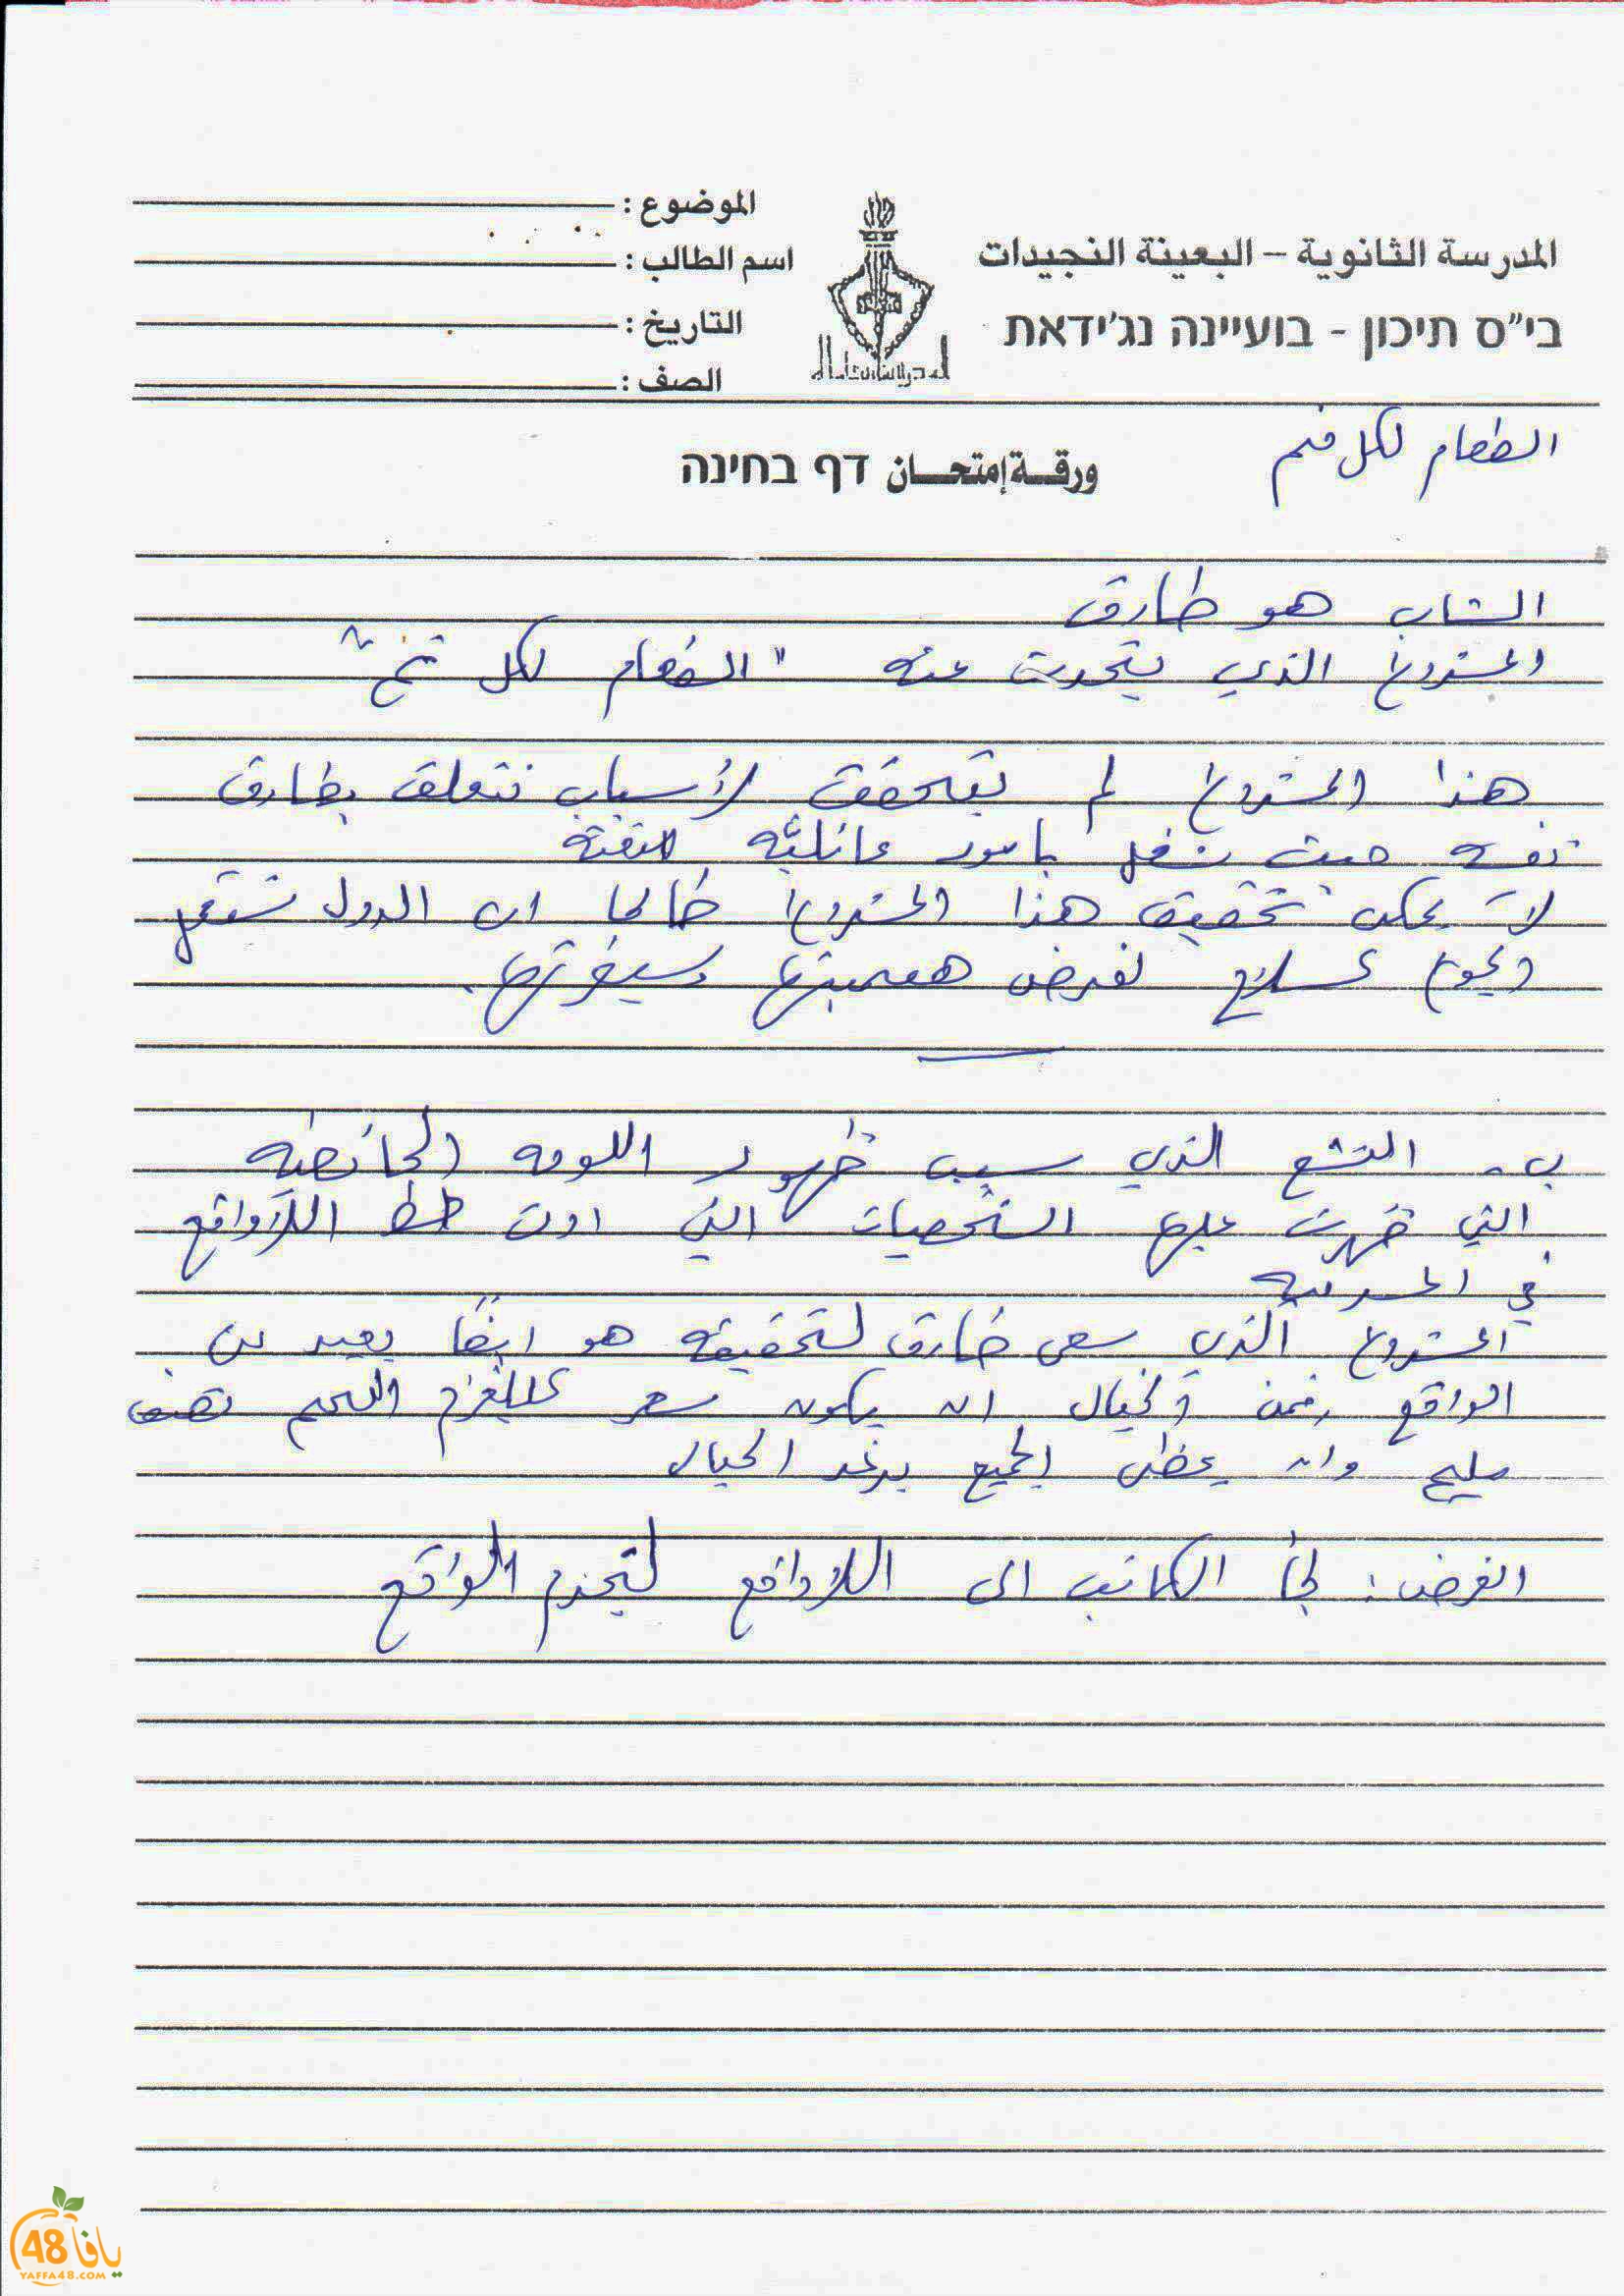 المدرسة الثانوية – البعينة النجيدات
בי"ס תיכון - בועיינה נג'ידאת
الموضوع :
اسم الطالب :
التاريخ :
الصف :
الطعام لكل فم
ورقـة إمتحـان דף בחינה
الشاب هو طارق
المشروع الذي يتحدث عنه " الطعام لكل فم "
هذا المشروع لم يتحقق لأسباب تتعلق بطارق
نفسه حيث شغل بامور عائليّه
لا يمكن تحقيق هذا المشروع طالما ان الدول تستعمل
الجوع كسلاح لفرض هيمنتها وسيطرتها.
ب- النشع الذي سبب ظهور اللوحه الحائطيه
التي ظهرت عليها الشخصيات التي ادت اللاواقع
في المسرحيه
المشروع الذي سعى طارق لتحقيقه هو ايضًا بعيد عن
الواقع فمن الخيال ان يكون سعر كيلغرام اللحم نصف
مليم وان يحظى الجميع برغد الحياه
الغرض: لجأ الكاتب الى اللاواقع ليخدم الواقع
يافا 48
YAFFA48.COM